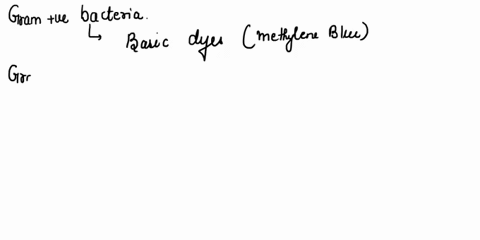 Gram +ve bacteria.
↳ Basic dyes (methylene Blue)
Gr